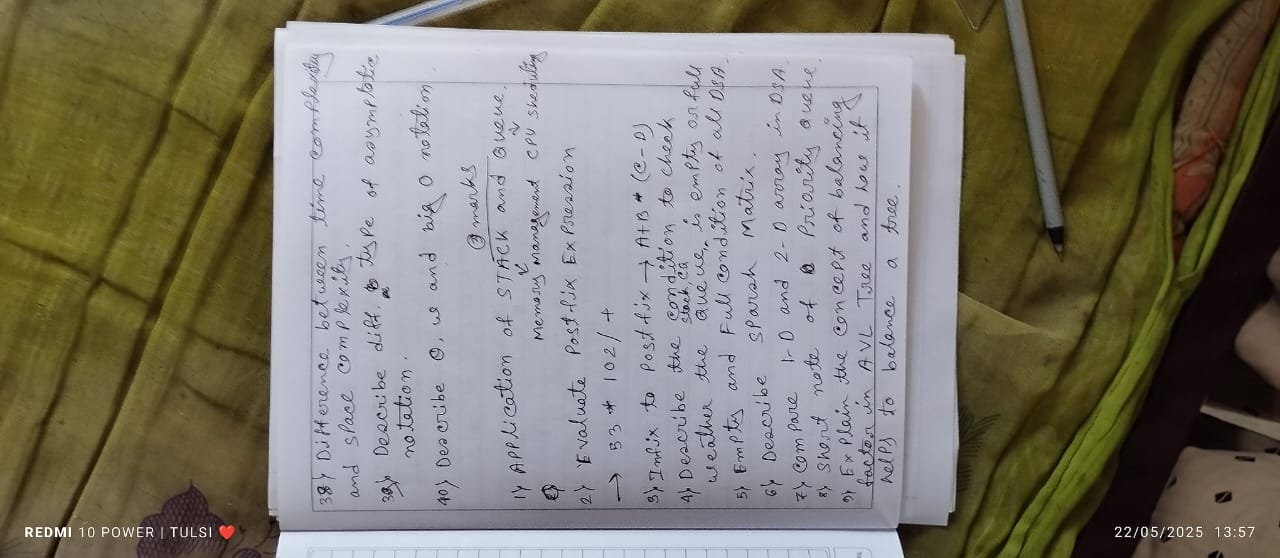 38) Difference between time complexity
and space complexity.
39) Describe diff. type of asymptotic
notation.
40) Describe Θ, w and big O notation
marks
1) Application of STACK and Queue.
Memory Management CPU Sheduling
2) Evaluate Postfix Expression
→ 53 * 102/ +
3) Infix to Postfix → A+B * (C-D)
4) Describe the condition to check
stack, CQ
weather the Queue is empty or full
5) Empty and Full condition of all DSA
6) Describe Sparsh Matrix.
7) Compare 1-D and 2-D array in DSA
8) Short note of Priority Queue.
9) Explain the concept of balancing
factor in AVL Tree and how it
helps to balance a tree.
REDMI 10 POWER | TULSI ❤
22/05/2025 13:57